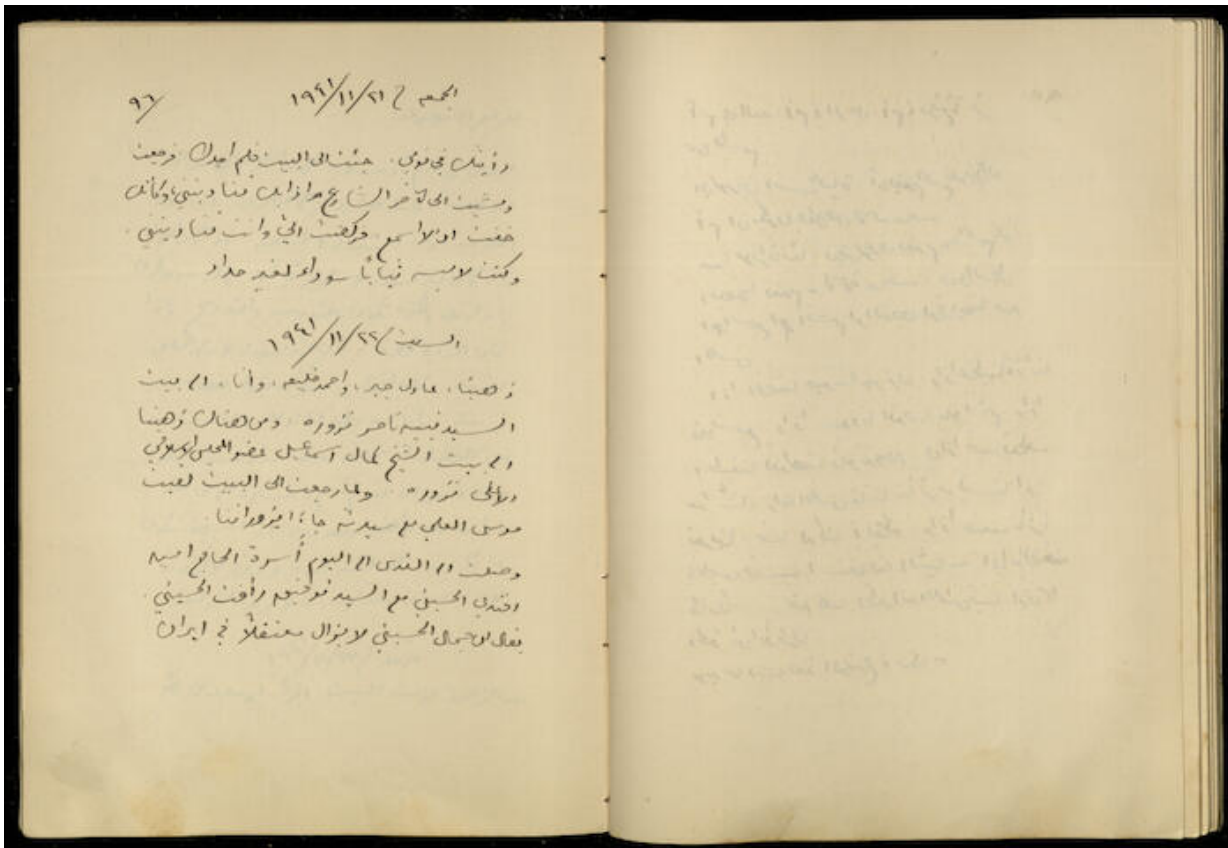 ٩٦/
الجمعه / ٢١/١١/١٩٤١
رأيتك في نومي. جئت الى البيت فلم اجدك فرجعت
ومشيت الى آخر الشارع واذا بك تناديني، وكأنك
خفت ان لا اسمع، فركضت اليّ وانت تناديني.
وكنت لابسه ثياباً سوداء لغير حداد
السبت / ٢٢/١١/١٩٤١
ذهبنا، عادل جبر، واحمد خليفه، وأنا، الى بيت
السيد نبيه ناصر نزوره. ومن هناك ذهبنا
الى بيت الشيخ كمال اسماعيل عضو المجلس الاسلامي
الاعلى نزوره. ولما رجعت الى البيت لقيت
موسى العلمي مع سيدته جاءا يزوراننا
وصلت الى القدس اليوم أسرة الحاج امين
افندي الحسيني مع السيد توفيق رأفت الحسيني.
يقال ان جمال الحسيني لا يزال معتقلاً في ايران